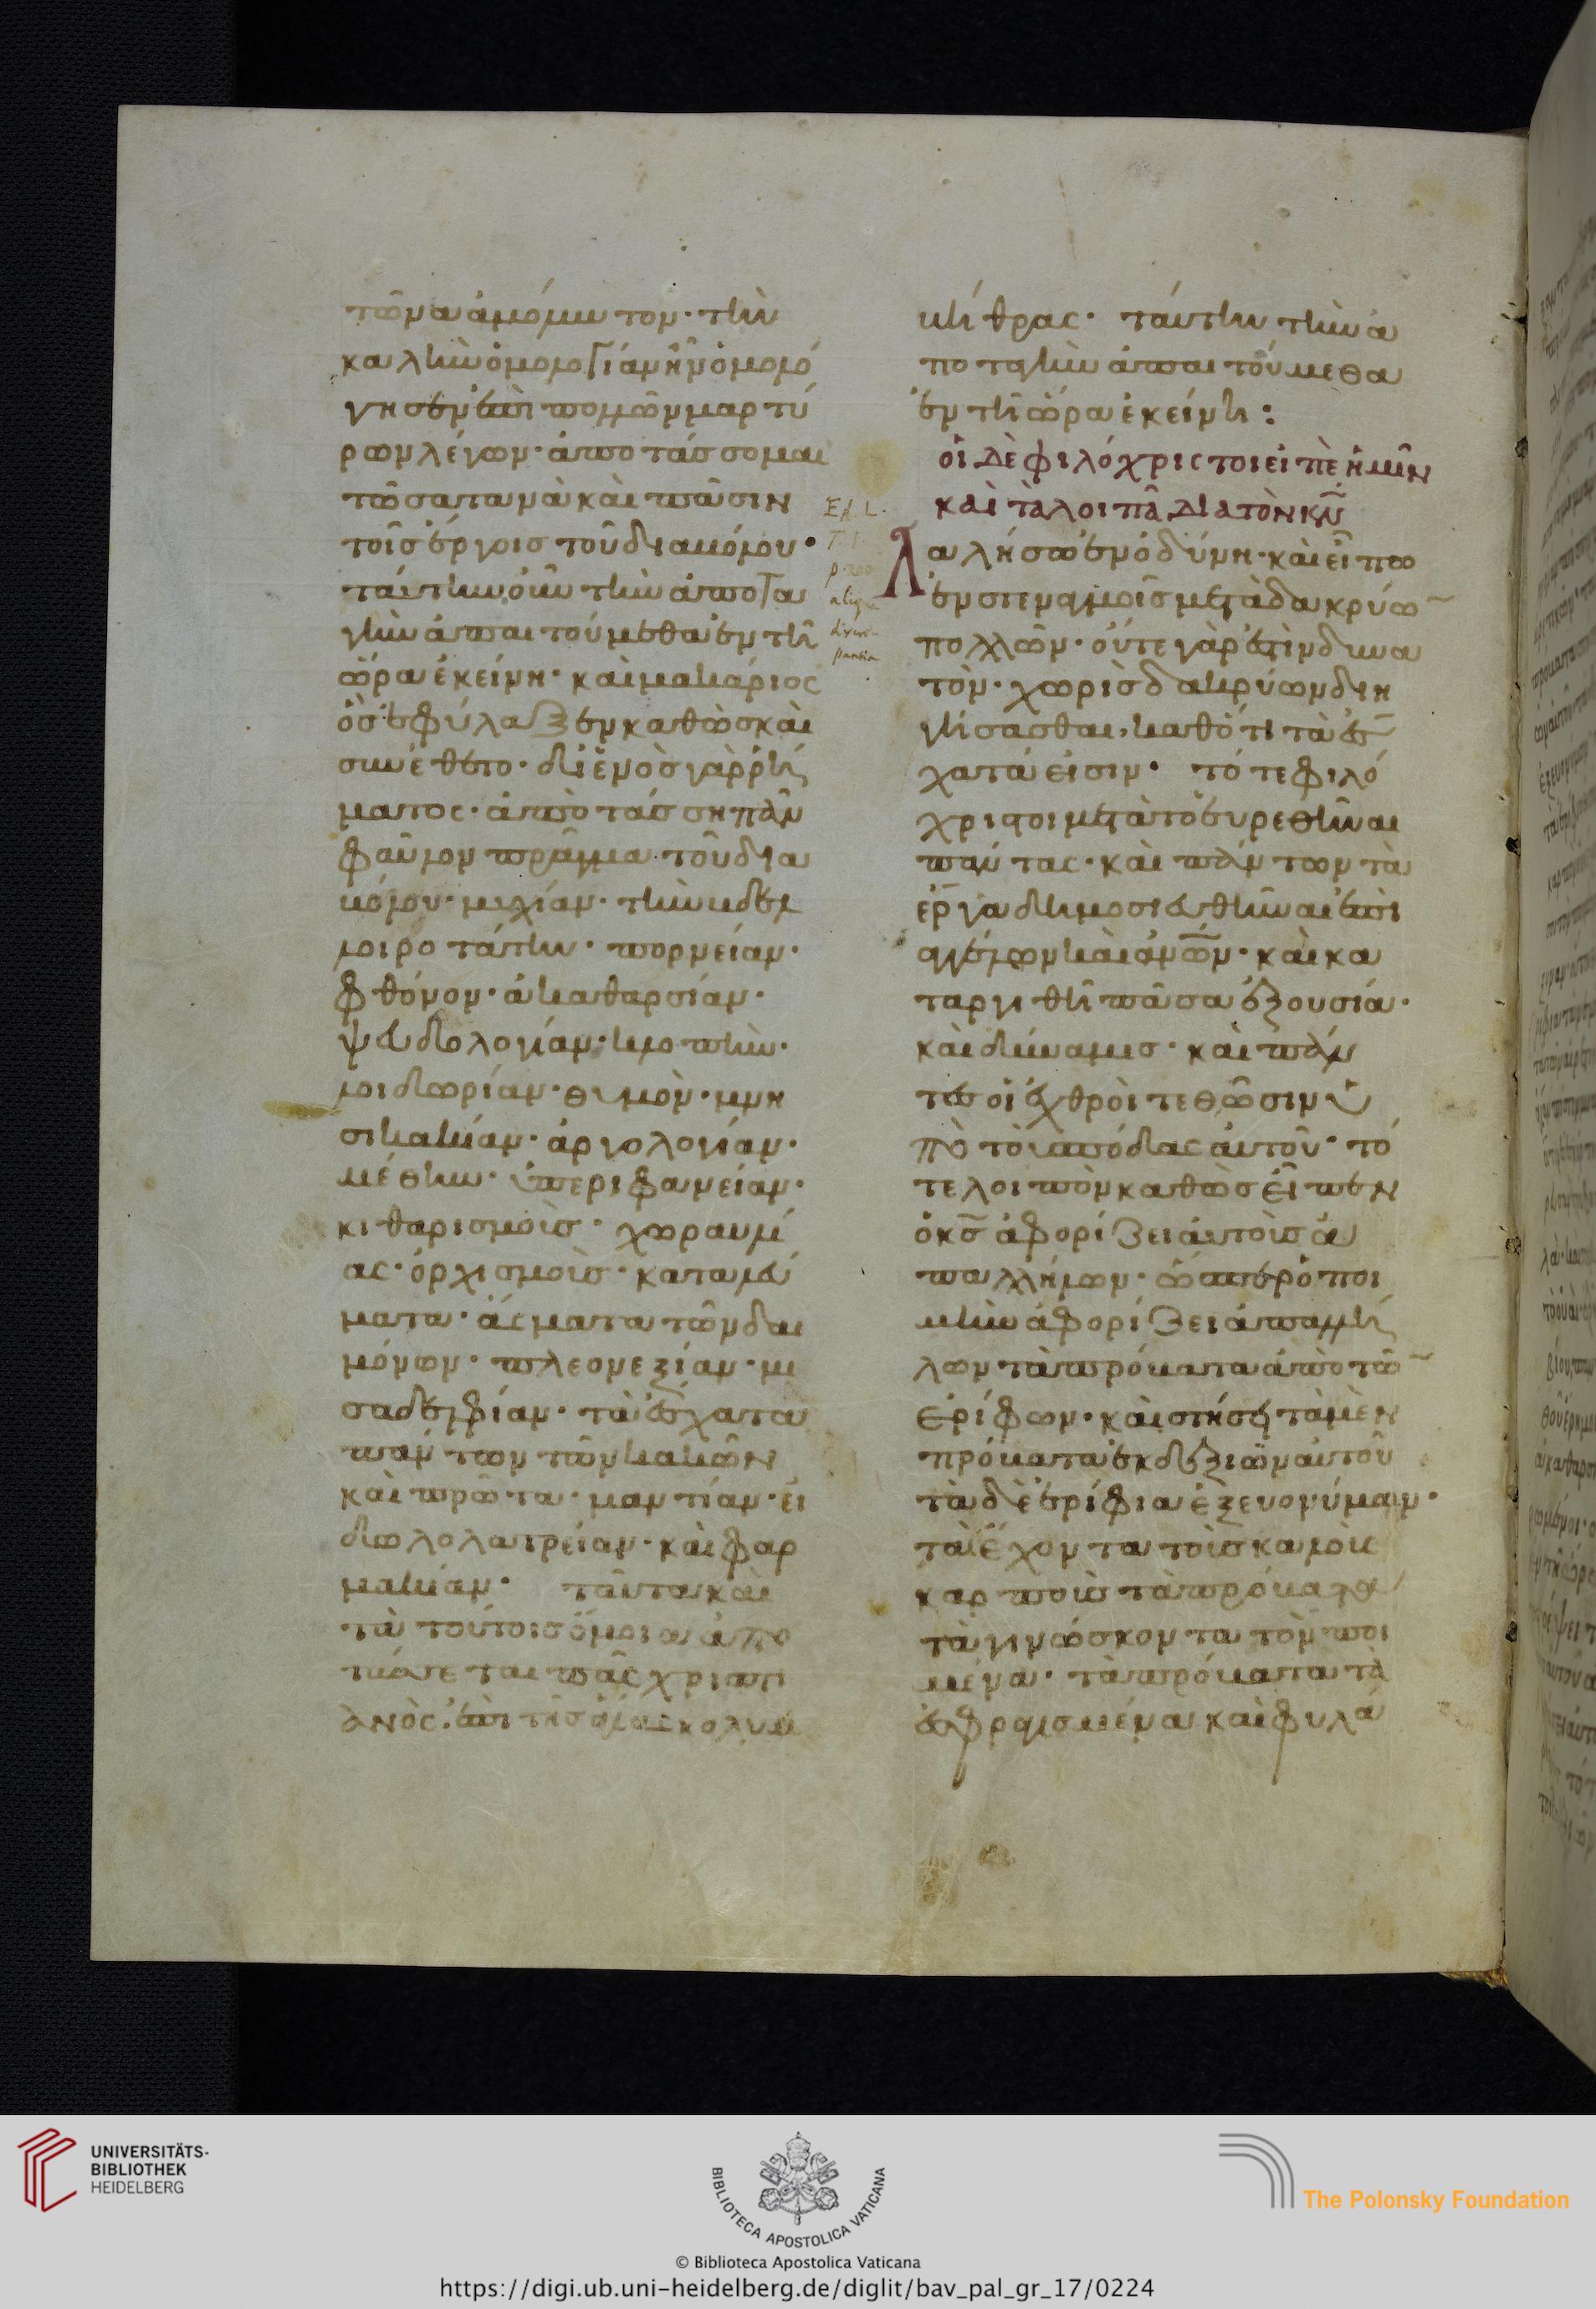 τῶν ἀναμόχλευτον· τὴν
καλὴν ὁμολογίαν ἣν ὡμολό
γησεν ἐπὶ πολλῶν μαρτύ
ρων λέγων· ἀποτάσσομαι
τῶ σατανᾶ καὶ πᾶσιν
τοῖς ἔργοις τοῦ διαβόλου·
ταύτην οὖν τὴν ἀποτα
γὴν ἀπαιτούμεθα ἐν τῆ
ὥρα ἐκείνη· καὶ μακάριος
ὃς ἐφύλαξεν καθὼς καὶ
συνέθετο· δι ἑνὸς γὰρ ῥή
ματος· ἀποτάσση πᾶν
φαῦλον πρᾶγμα τοῦ δια
βόλου· μιχίαν· τὴν βδελ
λοιροτάτην· πορνείαν·
φθόνον· ἀκαθαρσίαν·
ψευδολογίαν· κλοπὴν·
λοιδωρίαν· θυμὸν· μνη
σικακίαν· ἀργολογίαν·
μέθην· ὑπεριφανείαν·
κιθαρισμοὺς· χωραυλί
ας· ὀρχισμοὺς· καταλέ
ματα· ἄσματα τῶν δαι
μόνων· πλεονεξίαν· μι
σαδελφίαν· τὰ ἔσχατα
πάντων τῶν κακῶν
καὶ πρῶτα· μαντίαν· εἰ
δωλολατρείαν· καὶ φαρ
μακίαν· ταῦτα καὶ
τὰ τούτοις ὅμοια ἀπο
τάσσεται πᾶς χριστι
ανὸς· ἐπὶ τῆς ἁγίας κολυμ
βήθρας· ταύτην τὴν ἀ
ποταγὴν ἀπαιτούμεθα
ἐν τῆ ὥρα ἐκείνη:
οἱ δὲ φιλόχριστοι εἰπὲ ἡμῖν
καὶ τὰ λοιπὰ διὰ τὸν κν
Λαλήσω ἐν ὀδύνη· καὶ εἴπω
ἐν στεναγμοῖς μετὰ δακρύω
πολλῶν· οὔτε γὰρ ἐστὶν δυνα
τὸν· χωρὶς δακρύων διη
γήσασθαι, καθότι τὰ ἔσ
χατά εἰσιν· τότε φιλό
χριστοι μετὰ τὸ εὑρεθῆναι
πάντας· καὶ πάντων τὰ
ἔργα δημοσιευθῆναι ἐπὶ
ἀγγέλων καὶ ἀνων· καὶ κα
ταργηθῆ πᾶσα ἐξουσία·
καὶ δύναμις· καὶ πάν
τες οἱ ἐχθροὶ τεθῶσιν ὑ
πὸ τοὺς πόδας αὐτοῦ· τό
τε λοιπὸν καθὼς εἶπεν
ὁ κς ἀφορίζει αὐτοὺς ἀ
π ἀλλήλων· ὥσπερ ὁ ποι
μὴν ἀφορίζει ἀπ ἀλλή
λων τὰ πρόβατα ἀπὸ τῶ
ἐρίφων· καὶ στήσει τὰ μὲν
πρόβατα ἐκ δεξιῶν αὐτοῦ
τὰ δὲ ἐρίφια ἐξ εὐονύμων·
τὰ ἔχοντα τοὺς καλοὺς
καρποὺς τὰ πρόβατα
τὰ γινώσκοντα τὸν ποι
μένα· τὰ πρόβατα τὰ
ἐσφραγισμένα καὶ φυλά
UNIVERSITÄTS-
BIBLIOTHEK
HEIDELBERG
BIBLIOTECA APOSTOLICA VATICANA
© Biblioteca Apostolica Vaticana
The Polonsky Foundation
https://digi.ub.uni-heidelberg.de/diglit/bav_pal_gr_17/0224